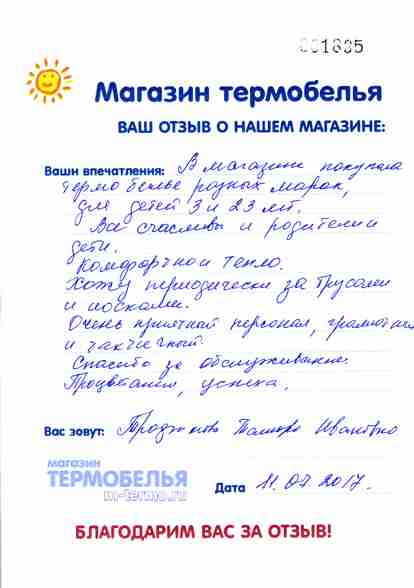 001835
Магазин термобелья
ВАШ ОТЗЫВ О НАШЕМ МАГАЗИНЕ:
Ваши впечатления: В магазине покупала
термобелье разных марок,
для детей 3 и 23 лет.
Все счастливы и родители и
дети.
Комфортно и тепло.
Хожу периодически за трусами
и носками.
Очень приятный персонал, грамотный
и тактичный.
Спасибо за обслуживание.
Процветания, успеха.
Вас зовут: Тамара Ивановна
магазин
ТЕРМОБЕЛЬЯ
m-termo.ru
Дата 11.07.2017.
БЛАГОДАРИМ ВАС ЗА ОТЗЫВ!